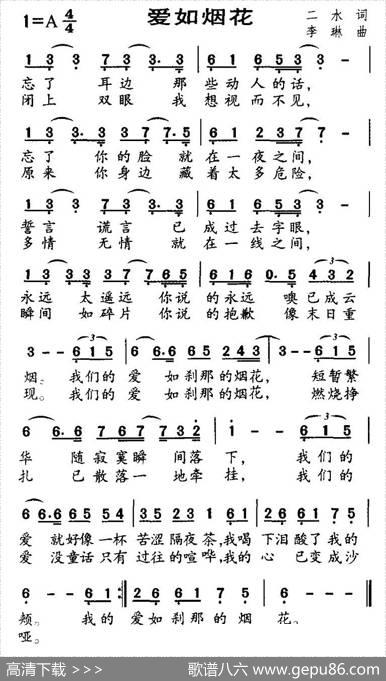 爱如烟花
1=A 4/4
二水 词
李琳 曲
1 3 3. 3 7 3 3. 3 6 1 6 5 3 3 -
忘了 耳边 那 些动人的话,
闭上 双眼 我 想视而不见,
1 3 3. 3 3 7 7. 5 6 1 2 3 7 7 -
忘了 你的脸 就 在一夜之间,
原来 你身边 藏 着太多危险,
1 3 3. 3 7 3 3. 3 6 1 6 5 3 3 -
誓言 谎言 已 成过去字眼,
多情 无情 就 在一线之间,
1 3 3. 3 3 7 7 6 5 6 1 6 0. 5 4 3 2
永远 太遥远 你说 的永远 噢已成云
瞬间 如碎片 你说 的抱歉 像末日重
3 - - 6 1 5 6 6. 6 6 5 2 4 3 3 - 6 1 5
烟。 我们的 爱 如刹那的烟花, 短暂繁
现。 我们的 爱 如刹那的烟花, 燃烧挣
6 6. 7 6 7 6 7 7 3 2 1 - - 6 1 5
华 随寂寞瞬 间落下, 我们的
扎 已散落一 地牵挂, 我们的
6 6. 6 6 5 6 5 6 5 4 3 3 5 6 6 1 2 6 7 5
爱 就好像一杯 苦涩隔夜茶,我喝 下泪酸了我的
爱 没童话只有 过往的喧哗,我的 心 已变成沙
6 - - 6 1 :‖ 2 6 6 1 7 5 6 - - - ‖
颊。 我的 爱如刹那的烟 花。
哑。
高清下载 >>>
歌谱八六 www.gepu86.com